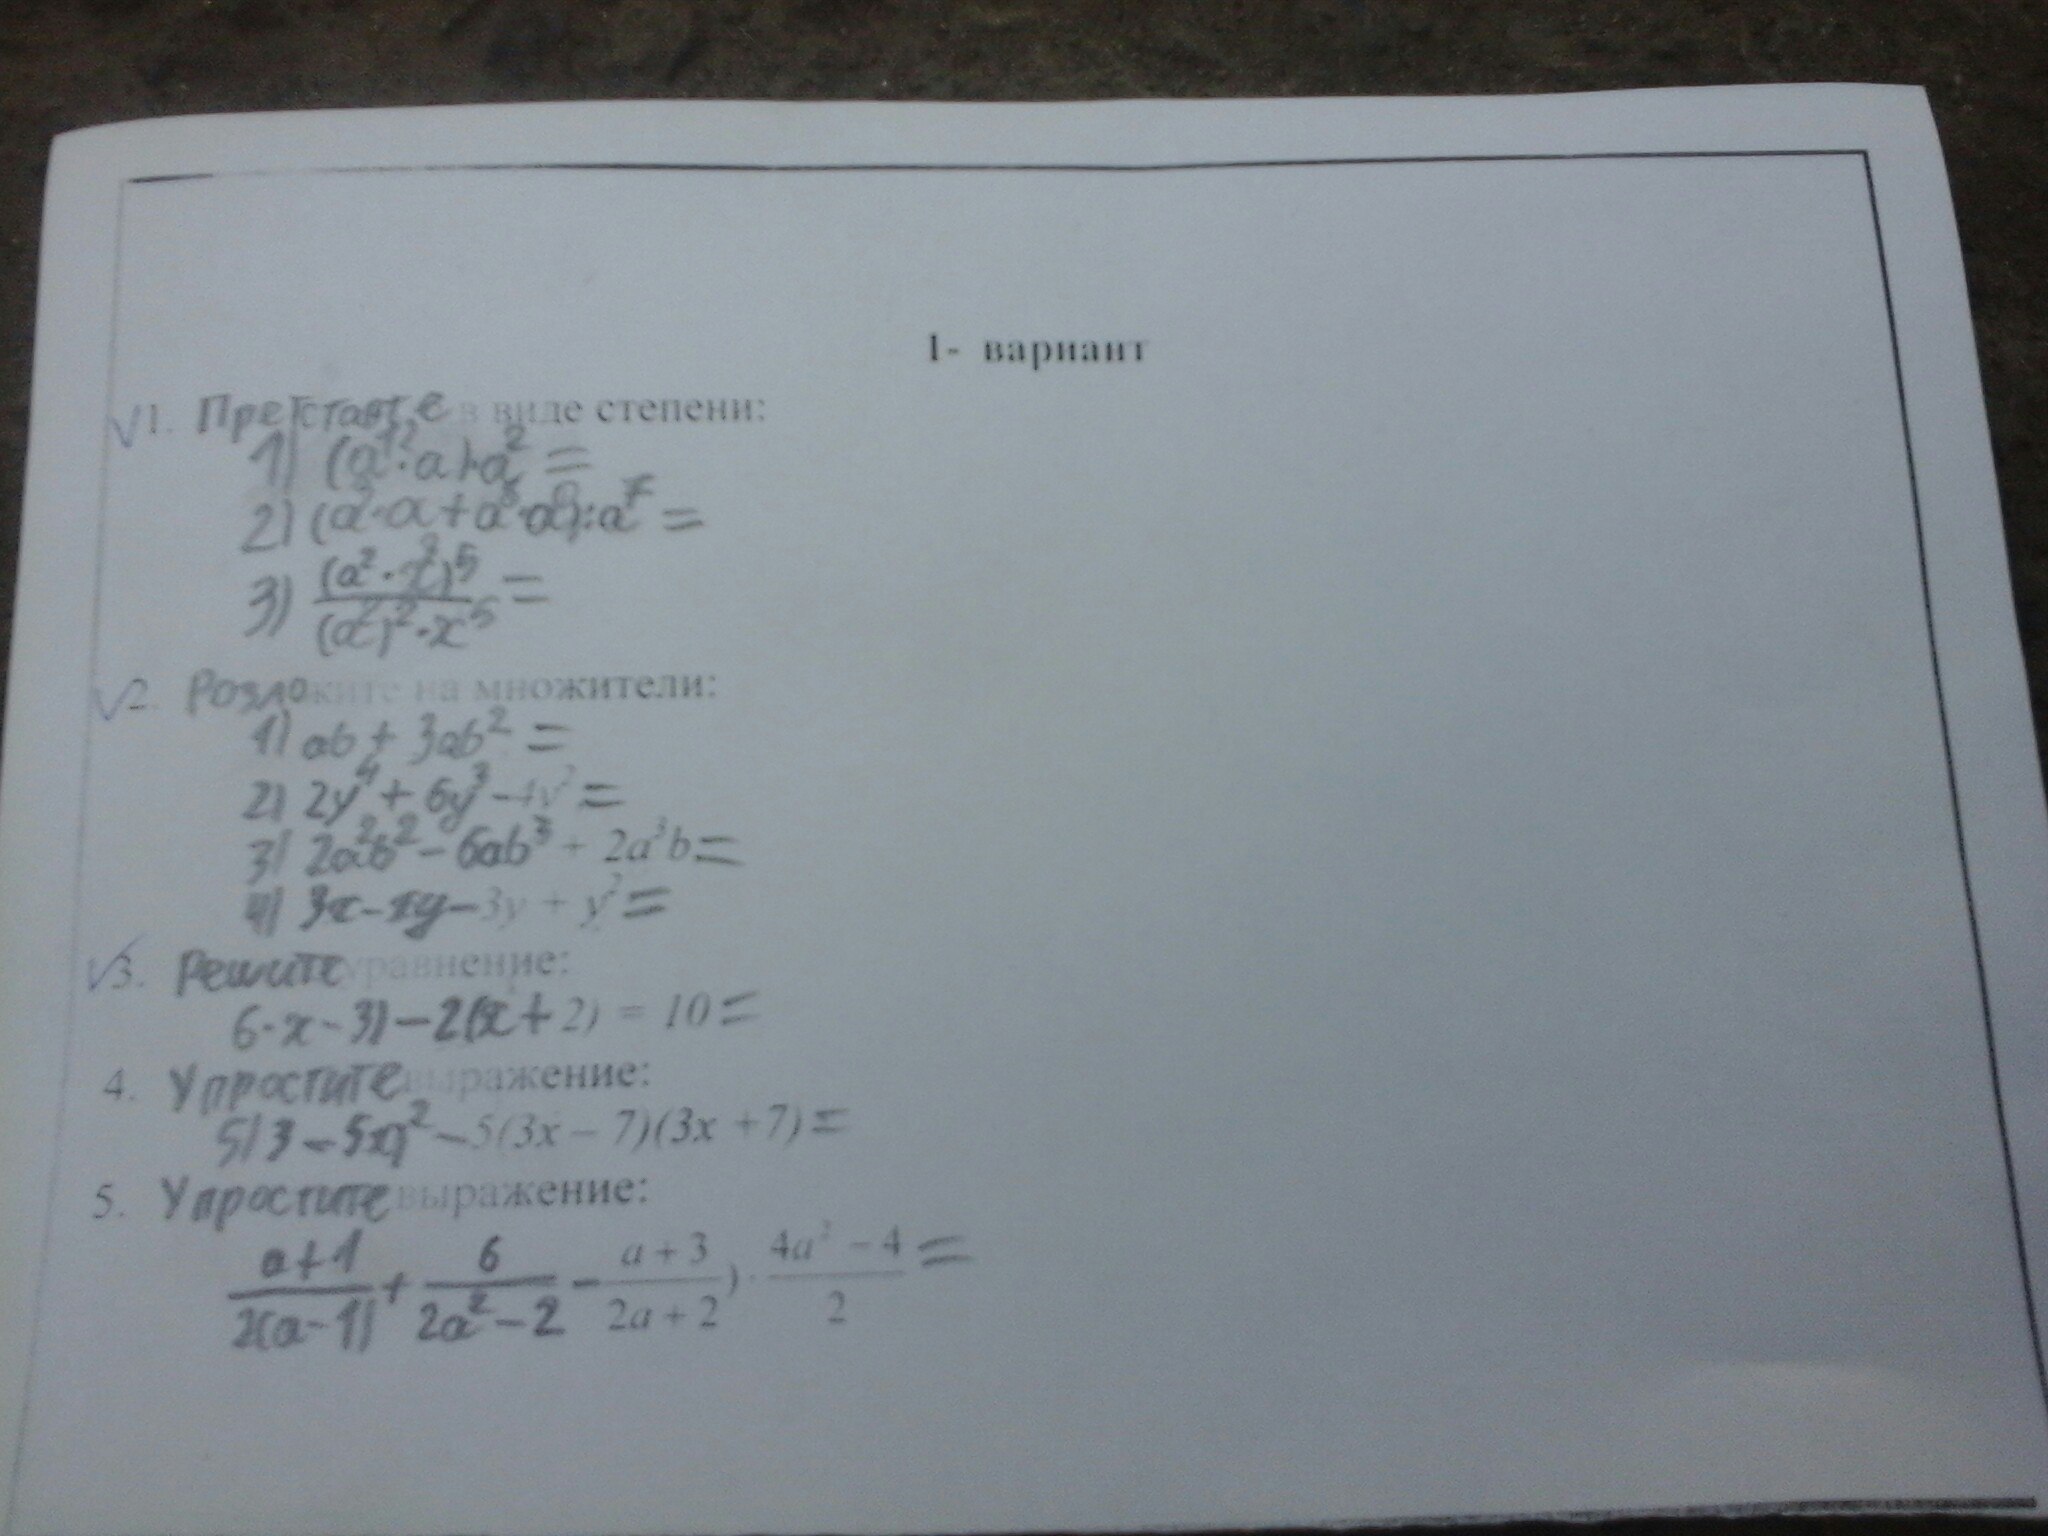 1- вариант
1. Претставте в виде степени:
1) (a¹²·a):a² =
2) (a²·a+a³·a⁰):a⁷ =
3) (a²·x²)⁵ / (a²)²·x⁵ =
2. Розложите на множители:
1) ab + 3ab² =
2) 2y⁴ + 6y³ - 4y² =
3) 2a²b² - 6ab³ + 2a³b =
4) 3x - xy - 3y + y² =
3. Решите уравнение:
6·x - 3) - 2(x + 2) = 10 =
4. Упростите выражение:
5(3 - 5x)² - 5(3x - 7)(3x + 7) =
5. Упростите выражение:
a+1 / 2(a-1) + 6 / 2a²-2 - a+3 / 2a+2) · 4a²-4 / 2 =